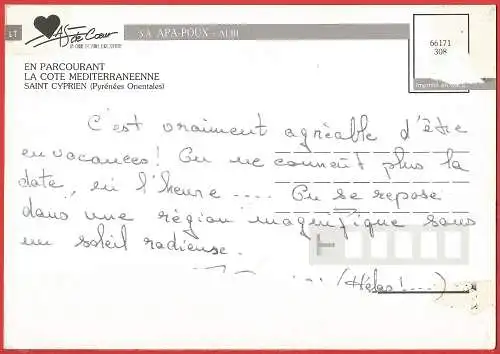 LT
As de Cœur
S.A APA-POUX - ALBI
66171
308
EN PARCOURANT
LA COTE MEDITERRANEENNE
SAINT CYPRIEN (Pyrénées Orientales)
C'est vraiment agréable d'être
en vacances! On ne connait plus la
date, ni l'heure .... On se repose
dans une région magnifique sous
un soleil radieuse.
... (Hélas!....)